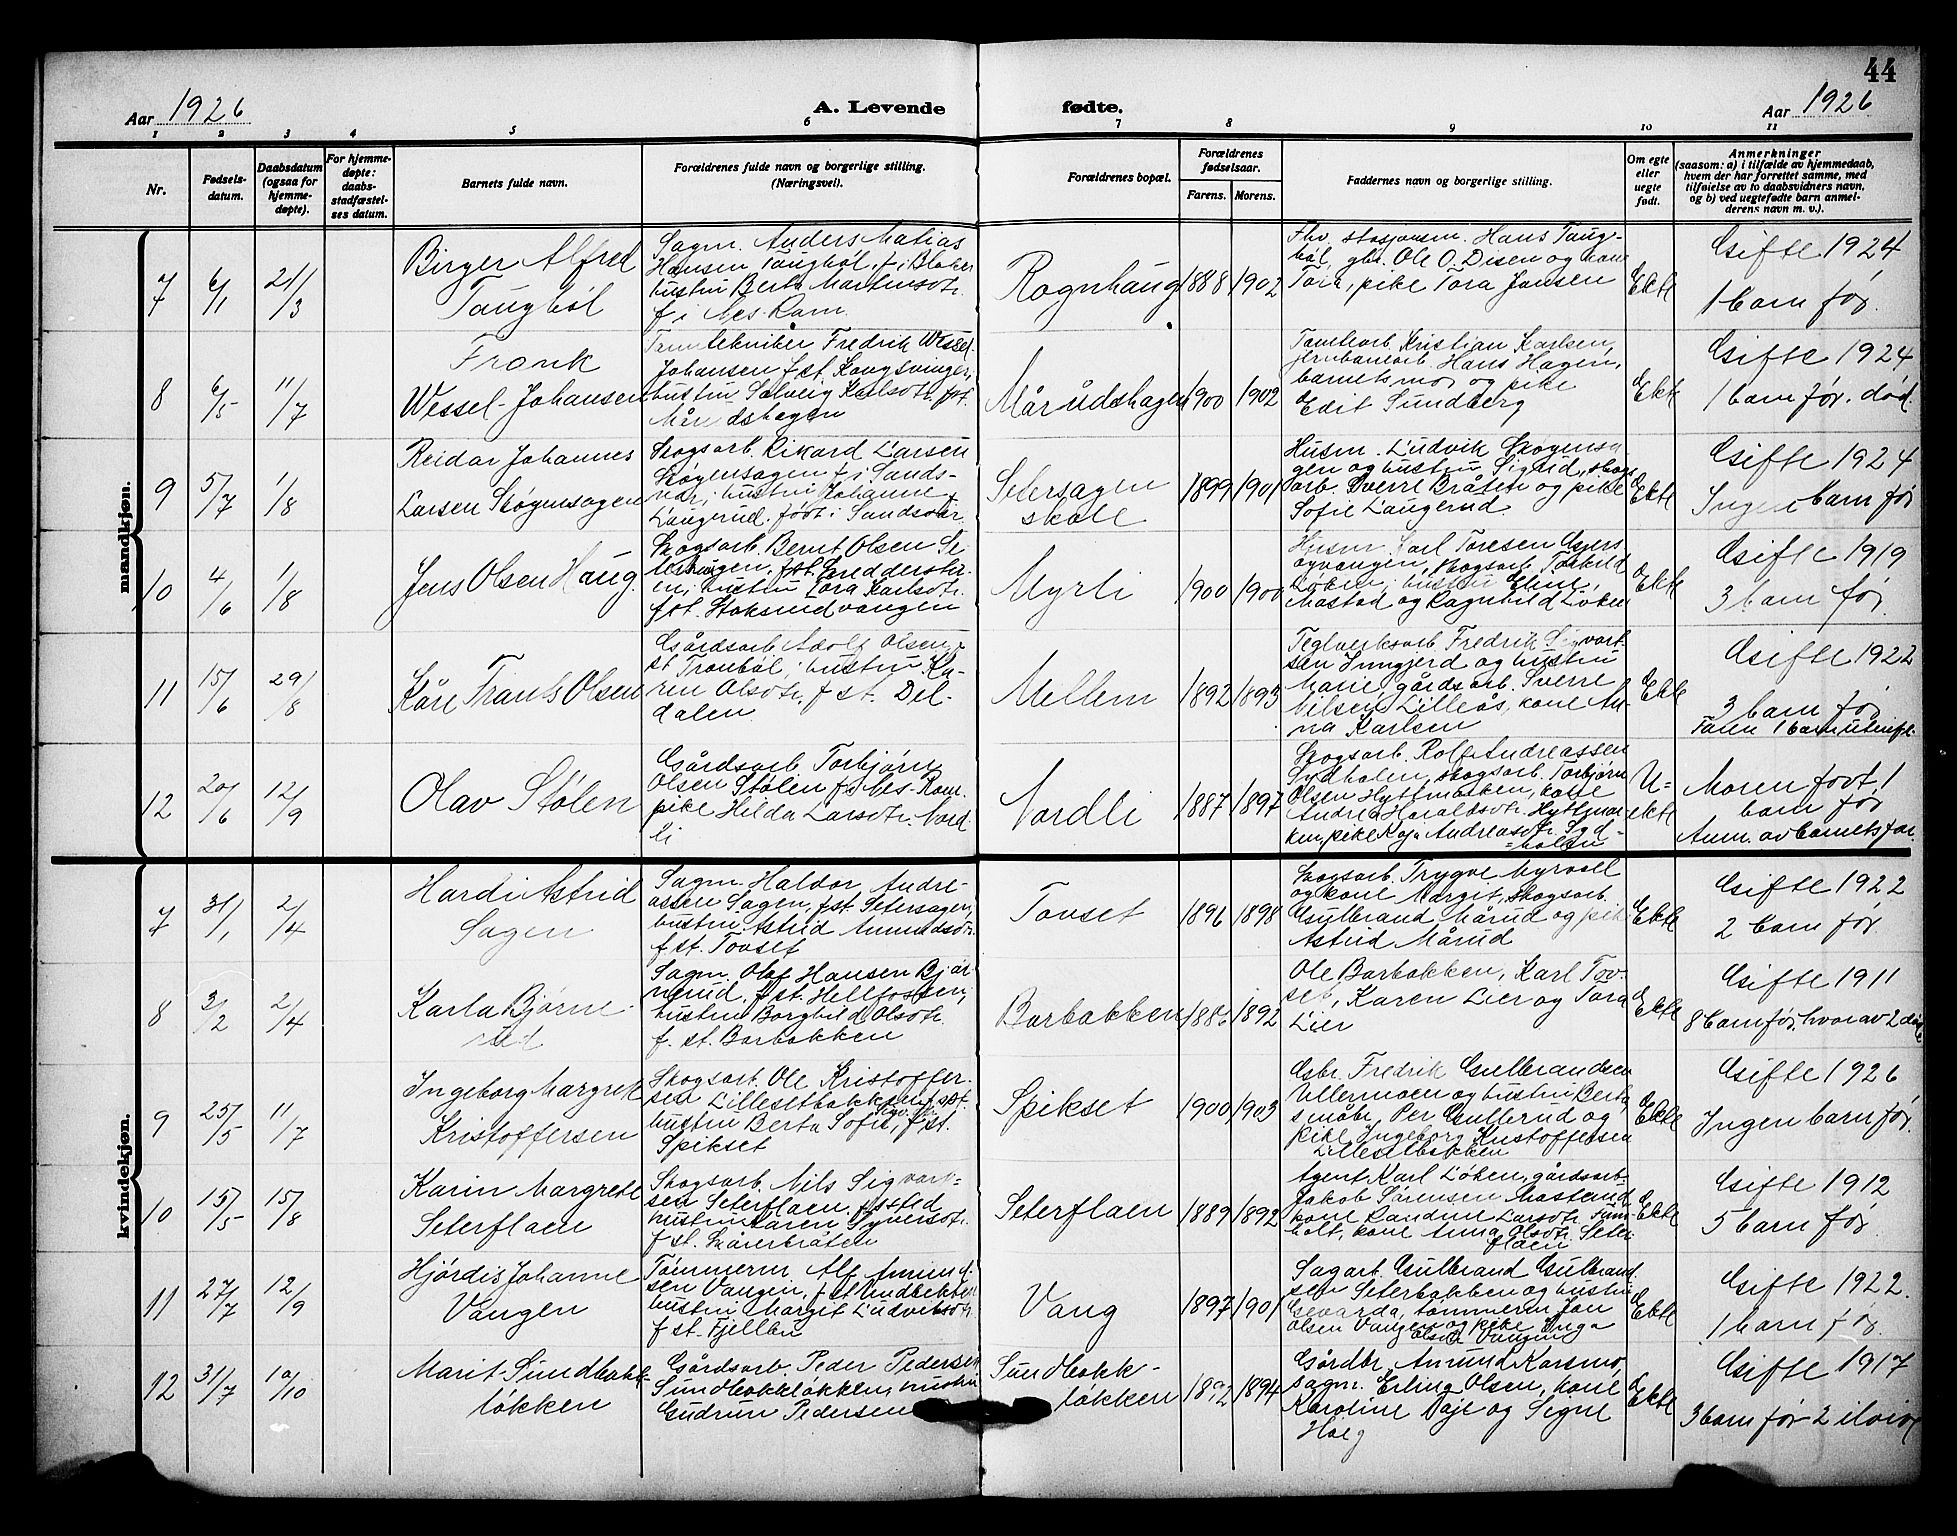 44
Aar 1926
A. Levende fødte.
Aar 1926
1 2 3 4 5 6 7 8 9 10 11
Nr.
Fødsels-
datum.
Daabsdatum
(ogsaa for
hjemme-
døpte).
For hjemme-
døpte:
daabs-
stadfæstel-
ses datum.
Barnets fulde navn.
Forældrenes fulde navn og borgerlige stilling.
(Næringsvei).
Forældrenes bopæl.
Forældrenes
fødselsaar.
Farens. Morens.
Faddernes navn og borgerlige stilling.
Om egte
eller
uegte
født.
Anmerkninger
(saasom: a) i tilfælde av hjemmedaab,
hvem der har forrettet samme, med
tilføielse av to daabsvidners navn,
og b) ved uegtefødte barn anmel-
derens navn m. v.).
mandkjøn.
7
6/1
21/3
Birger Alfred
Taugbøl
Sagm. Anders Matias
Hansen Taugbøl, f. i Blaker
hustru Berta Martinsdtr.
f. i Nes. Rom.
Rognhaug
1888
1902
Fhv. stasjonsm. Hans Taug-
bøl, gbr. Ole O. Disen og kone
Tora, pike Tora Jansen
Ekte
Gifte 1924
1 barn før.
8
6/5
11/7
Frank
Wessel-Johansen
Tanntekniker Fredrik Wessel-
Johansen f. st. Kongsvinger,
hustru Solveig Karlsdtr. f. st.
Mårudshagen
Mårudshagen
1900
1902
Tomtearb. Kristian Karlsen,
jernbanearb. Hans Hagen,
barnets mor og pike
Edit Sundberg
Ekte
Gifte 1924
1 barn før. død.
9
5/7
1/8
Reidar Johannes
Larsen Skøgensagen
Skogsarb. Rikard Larsen
Skøgensagen f. i Sands-
vær, hustru Johanne
Laugerud. født i Sandsvær.
Setersagen
skole
1899
1901
Husm. Ludvik Skøgensa
gen og hustru Sigrid, skogs
arb. Sverre Bråten og pike
Sofie Laugerud.
Ekte
Gifte 1924
Ingen barn før
10
4/6
1/8
Jens Olsen Haug.
Skogsarb. Bernt Olsen Se
f. st.
en, hustru Lora Karlsdtr.
f. st. Stoksrudvangen
Myrli
1900
1900
Husm. Karl Toresen
skogsarb. Torkild
Løken, hustru Eline
Mastad og Ragnhild Løken
Ekte
Gifte 1919
3 barn før.
11
15/6
29/8
Kåre Frants Olsen
Gårdsarb. Adolf Olsen
st. Tronbøl, hustru Ka-
ren Olsdtr. f. st. Del-
dalen.
Mellem
1892
1893
Teglverksarb. Fredrik Sigvart-
sen Inngjerd og hustru
Marie, gårdsarb. Sverre
Nilsen Lilleås, kone An-
na Karlsen
Ekte
Gifte 1922
3 barn før
Faren 1 barn utenf.
12
20/6
12/9
Olav Stølen
Gårdsarb. Torbjørn
Olsen Stølen f. i Nes. Rom.
pike Hilda Larsdtr. Nord-
li
Nordli
1887
1897
Skogsarb. Rolf Andreassen
Sydholen, skogsarb. Torbjørn
Olsen Hyttmarken, kone
Andrea Haraldsdtr. Hyttmar-
ken, pike Kaja Andreasdtr. Syd-
holen
U=
ekte
Moren født 1
barn før
Anm. av barnets far.
kvindekjøn.
7
31/1
2/4
Hardi Astrid
Sagen
Sagm. Haldor Andre-
assen Sagen, f. st. Setersagen,
hustru Astrid Amundsdtr.
f. st. Tovset
Tovset
1896
1898
Skogsarb. Trygve Myrvoll
og kone Margit, skogsarb.
Gulbrand Mårud og pike
Astrid Mårud
Ekte
Gifte 1922
2 barn før.
8
3/2
2/4
Karla Bjørne
rud
Sagm. Olaf Hansen Bjør
nerud, f. st. Hellfossen,
hustru Borghild Olsdtr.
f. st. Barbakken
Barbakken
1886
1892
Ole Barbakken, Karl Tov-
set, Karen Lier og Tora
Lier
Ekte
Gifte 1911
8 barn før, hvorav 2 døde
9
25/5
11/7
Ingeborg Margrete
Kristoffersen
Skogsarb. Ole Kristoffer-
sen Lillesetbakken, f. st.
hustru Berta Sofie, f. st.
Spikset
Spikset
1900
1903
Gbr. Fredrik Gulbrandsen
Ullermoen og hustru Berta
småbr. Per Gullerud og
pike Ingeborg Kristoffersen
Lillesetbakken
Ekte
Gifte 1926
Ingen barn før.
10
15/5
15/8
Karin Margrete
Seterflaen
Skogsarb. Nils Sigvart-
sen Seterflaen, f. sted
hustru Karen Synersdtr.
f. st. Skårerbråten
Seterflaen
1889
1892
Agent Karl Løken, gårdsarb.
Jakob Sørensen Masterud
kone Randine Larsdtr. Furu-
holt, kone Anna Olsdtr. Seter
flaen
Ekte
Gifte 1912
5 barn før
11
27/7
12/9
Hjørdis Johanne
Vangen
Tømmerm. Alf Amund-
sen Vangen, f. st.
hustru Margit Ludviksdtr.
f. st. Fjellbu
Vang
1897
1901
Sagarb. Gulbrand Gulbrand-
sen Seterbakken og hustru
Gevarda, tømmerm. Jon
Olsen Vangen og pike Inga
Olsen Vangen
Ekte
Gifte 1922.
1 barn før.
12
31/7
10/10
Marit Sundbakk-
løkken
Gårdsarb. Peder Pedersen
Sundbakkløkken, hustru
Gudrun Pedersen
Sundbakk-
løkken
1892
1894
Gårdbr. Amund Korsmo,
sagm. Erling Olsen, kone
Karoline Voje og Signe
Haug
Ekte
Gifte 1917
3 barn før 2 ilive